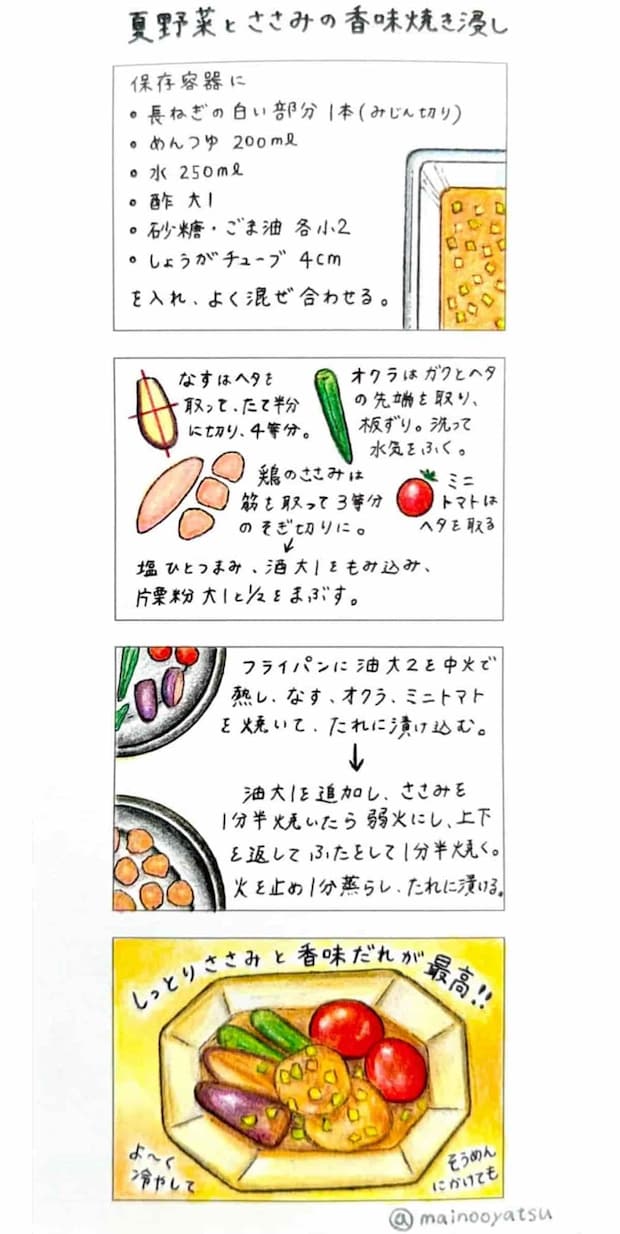 夏野菜とささみの香味焼き浸し
保存容器に
• 長ねぎの白い部分 1本(みじん切り)
• めんつゆ 200ml
• 水 250ml
• 酢 大1
• 砂糖・ごま油 各小2
• しょうがチューブ 4cm
を入れ、よく混ぜ合わせる。
なすはヘタを
取って、たて半分
に切り、4等分。
オクラはガクとヘタ
の先端を取り、
板ずり。洗って
水気をふく。
鶏のささみは
筋を取って3等分
のそぎ切りに。
ミニ
トマトは
ヘタを取る
塩ひとつまみ、酒大1をもみ込み、
片栗粉大1と1/2をまぶす。
フライパンに油大2を中火で
熱し、なす、オクラ、ミニトマト
を焼いて、たれに漬け込む。
油大1を追加し、ささみを
1分半焼いたら弱火にし、上下
を返してふたをして1分半焼く。
火を止め1分蒸らし、たれに漬ける。
しっとりささみと香味だれが最高!!
よ〜く
冷やして
そうめん
にかけても
@mainooyatsu